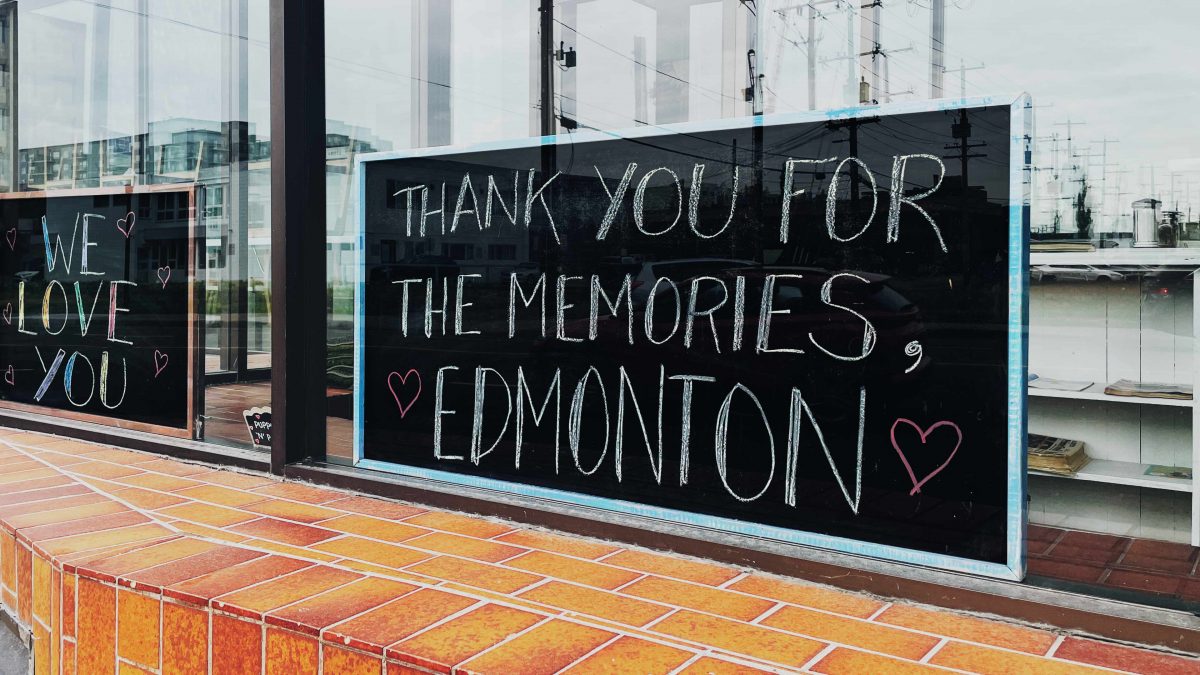 WE
LOVE
YOU
THANK YOU FOR
THE MEMORIES,
EDMONTON